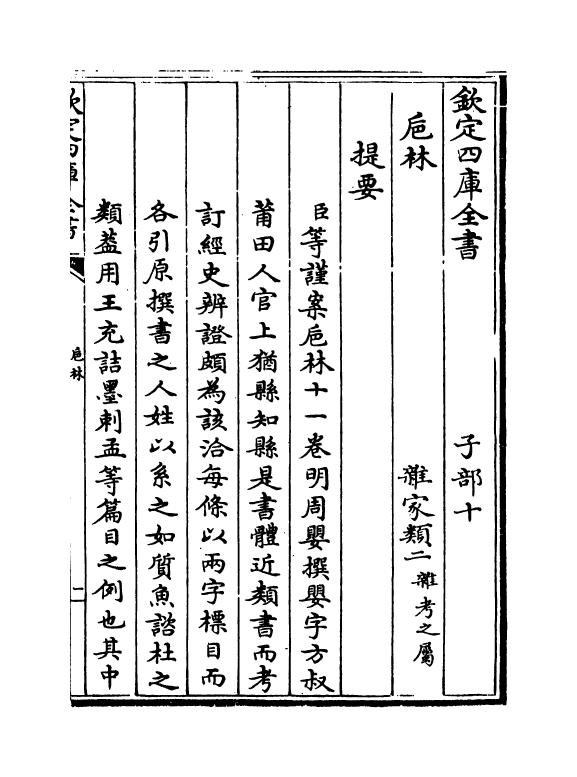 欽定四庫全書　子部十
巵林　雜家類二雜考之屬
提要
臣等謹案巵林十一卷明周嬰撰嬰字方叔
莆田人官上猶縣知縣是書體近類書而考
訂經史辨證頗為該洽每條以兩字標目而
各引原撰書之人姓以系之如質魚諮杜之
類葢用王充詰墨刺孟等篇目之例也其中
欽定四庫全書　巵林　二